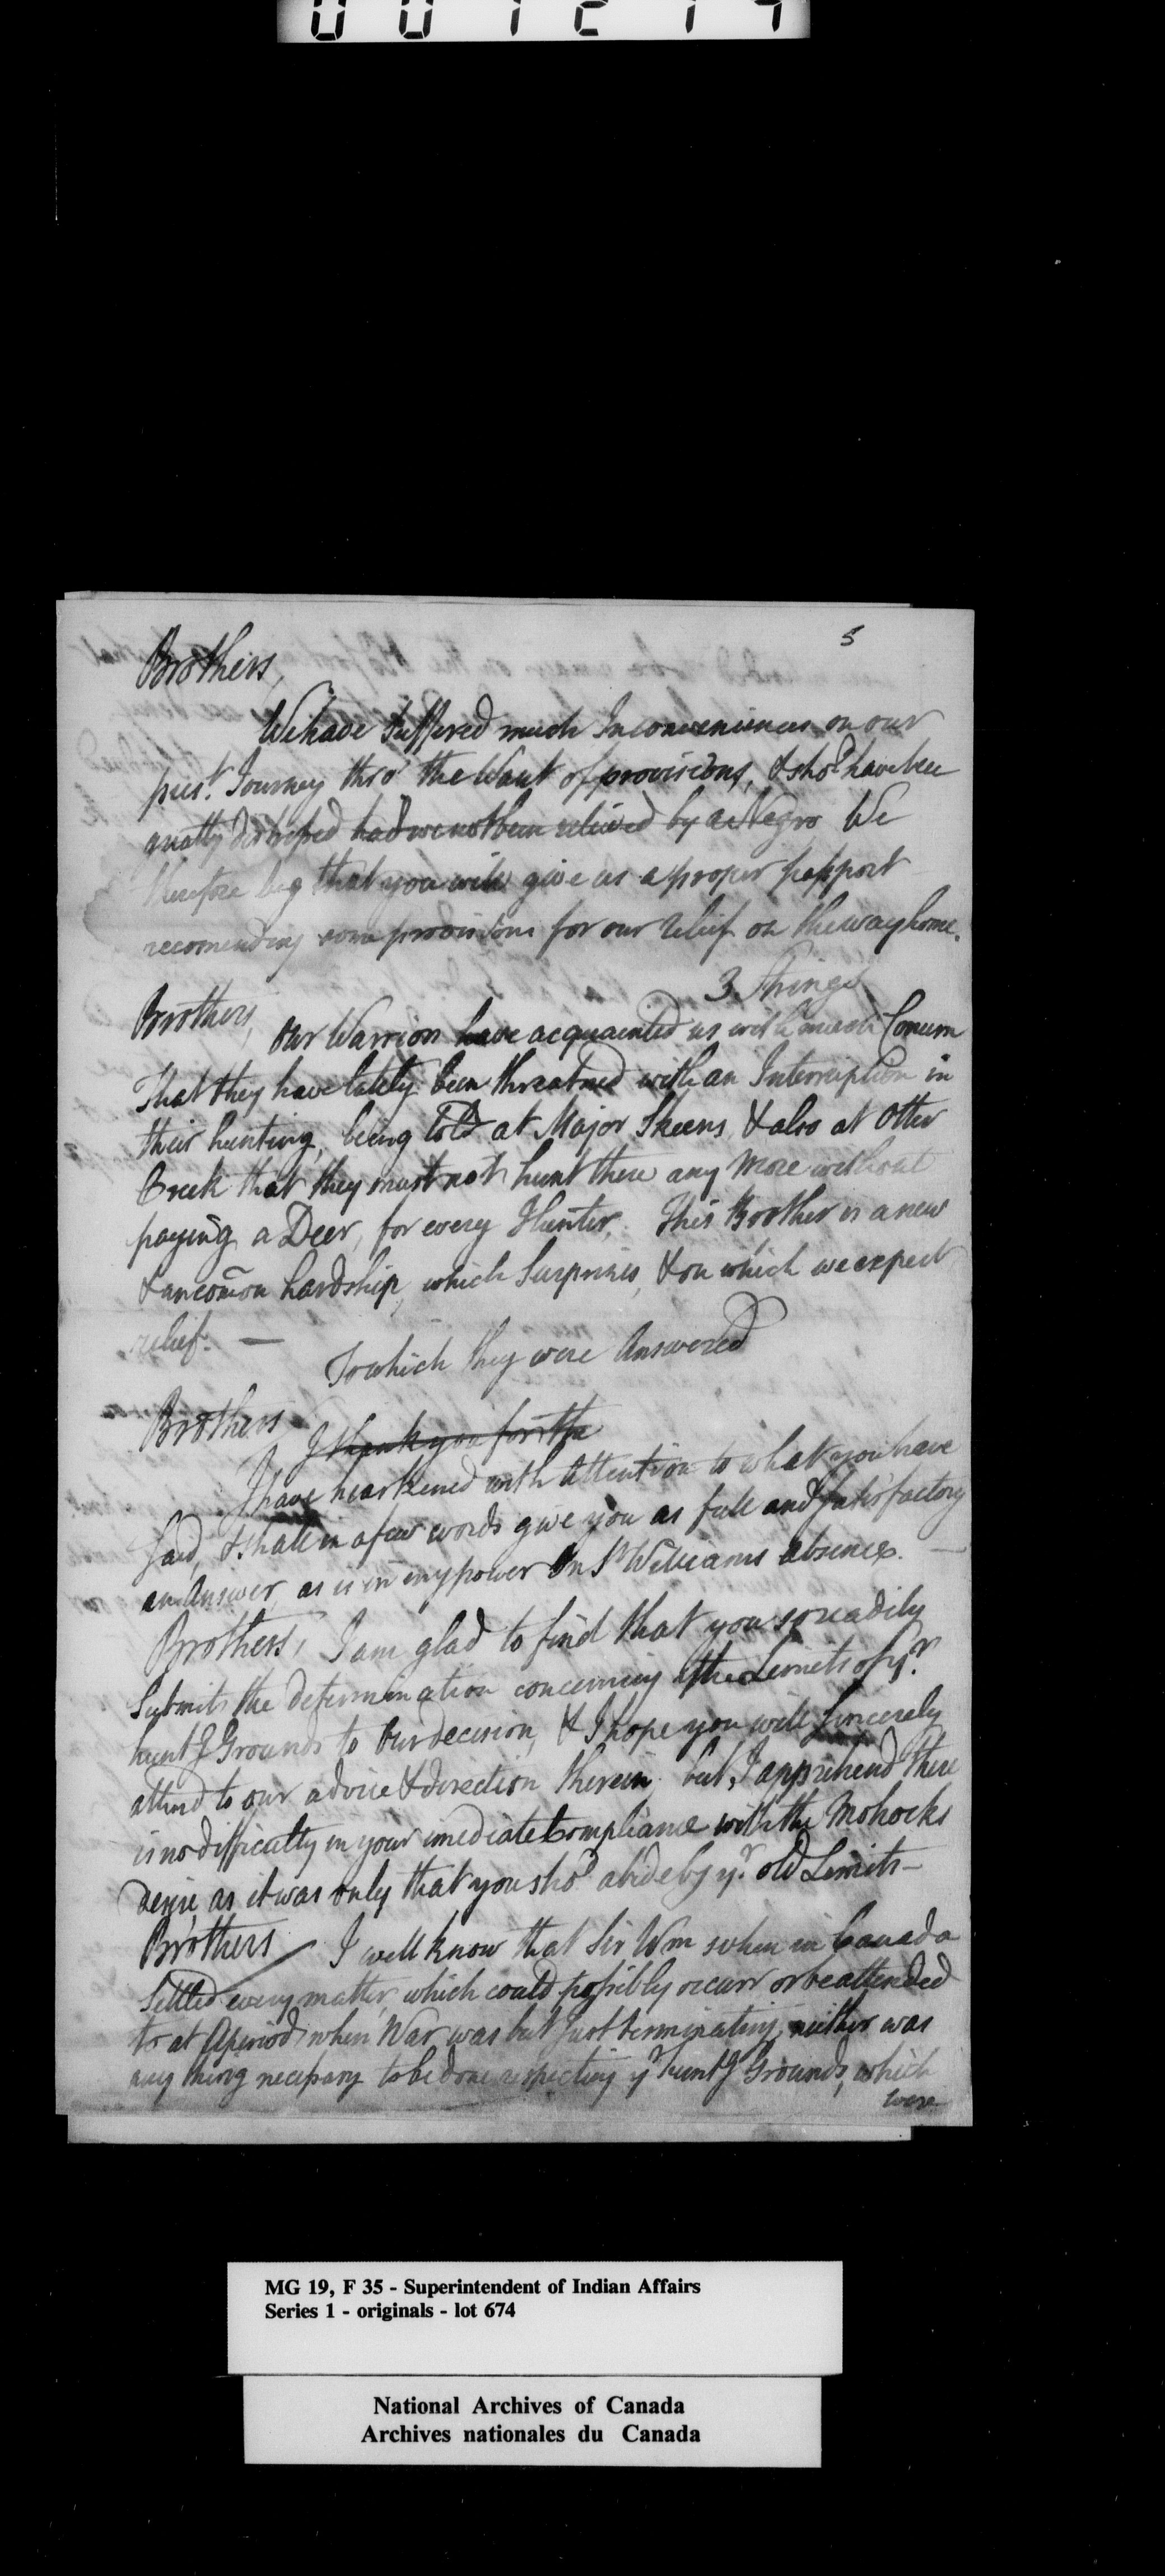 001214
5
Brothers,
We have Suffered much Inconveniences on our
prest. Journey thro' the Want of provisions, & shod. have been
greatly distressed had we not been relieved by a Negro We
therefore beg that you will give us a proper passport
recomending some provisions for our relief on the way home.
3 Strings
Brothers,
Our Warriors have acquainted us with much Concern
That they have lately been threatned with an Interruption in
their hunting, being told at Major Skeens, & also at Otter
Creek that they must not hunt there any More without
paying a Deer, for every Hunter. This Brother is a new
& uncomōn hardship, which Surprises, & on which we expect
relief. —
To which they were Answered
Brothers
I thank you for the
I have hearkened with Attention to what you have
Said, & shall in a few words give you as full and satisfactory
an Answer, as is in my power In Sr Williams absence. —
Brothers, I am glad to find that you so readily
Submit the determination concerning the Limits of yr.
huntg Grounds to Our decision, & I hope you will Sincerely
attend to our advice & direction therein, but I apprehend there
is no difficulty in your imediate Compliance with the Mohocks
Desire as it was only that you shod. abide by yr. old Limits —
Brothers I well know that Sir Wm when in Canada
Settled every matter which could possibly occurr or be attended
to at A period when War was but Just terminating, neither was
any thing necessary to be done respecting yr huntg Grounds, which
were
MG 19, F 35 - Superintendent of Indian Affairs
Series 1 - originals - lot 674
National Archives of Canada
Archives nationales du Canada